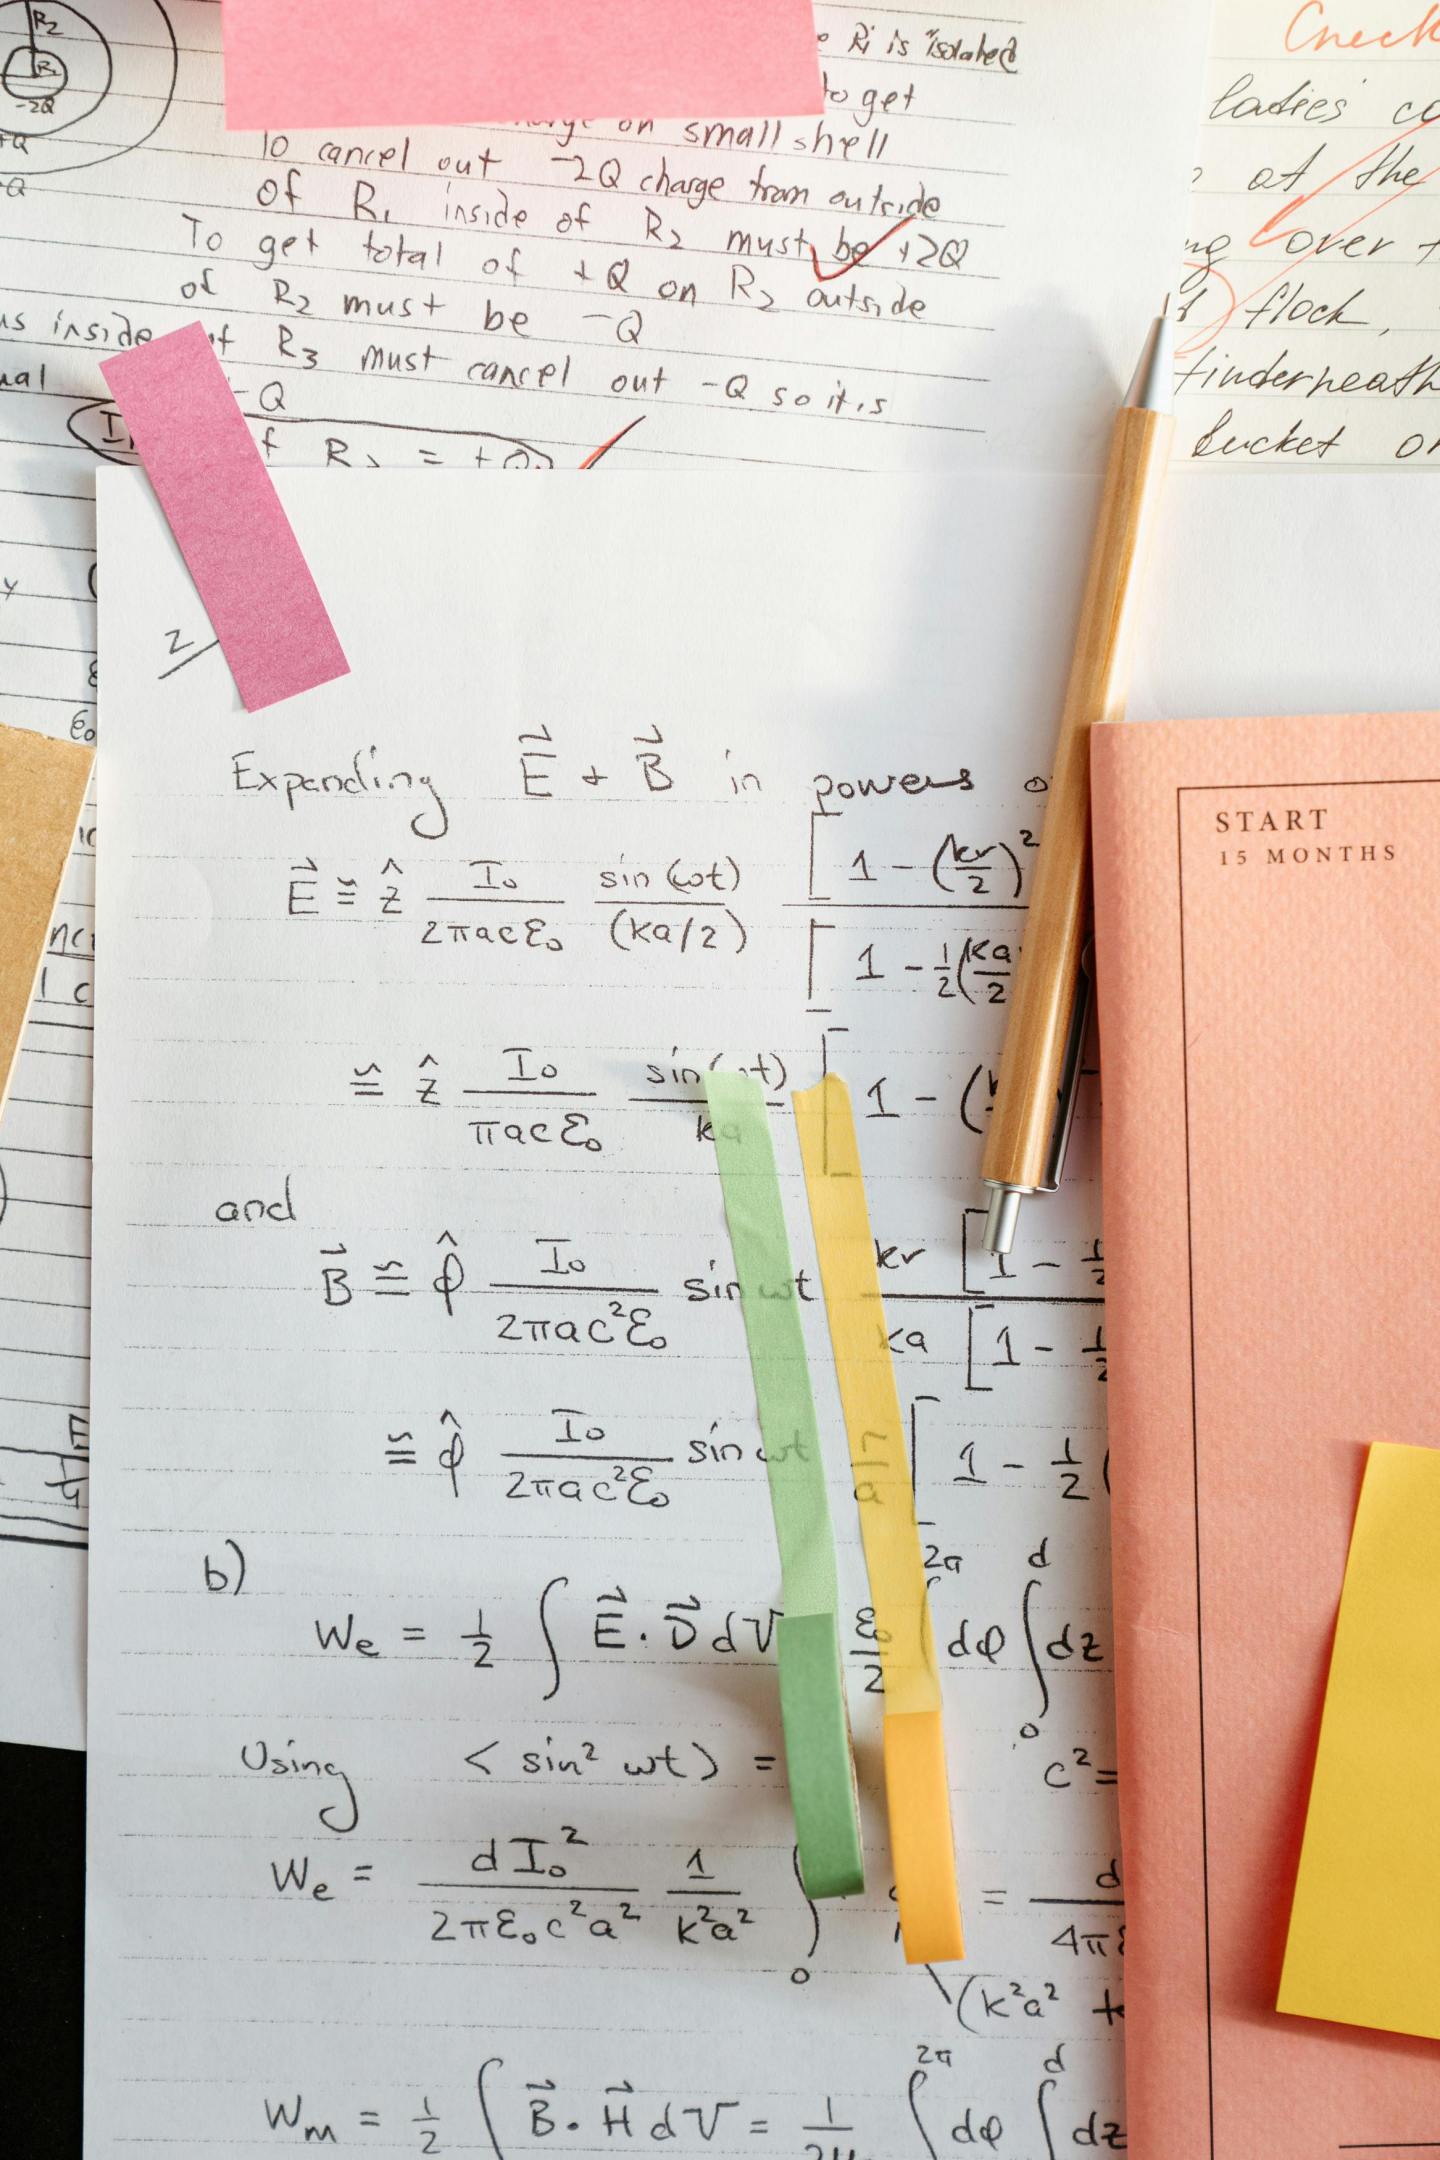 R2
R1
-2Q
+Q
-Q
Ri is "isolated
to get
charge on small shell
To cancel out -2Q charge from outside
of R1 inside of R2 must be +2Q
To get total of +Q on R2 outside
of R2 must be -Q
inside of R3 must cancel out -Q so it is
-Q
f R = +Q
Check
ladies' co
at the
ng over t
flock,
finderneath
bucket on
2
Expanding E⃗ + B⃗ in powers o
E⃗ ≅ ẑ I₀/(2πacε₀) sin(ωt)/(ka/2) [1 - (kr/2)²
[1 - 1/2(ka/2
≅ ẑ I₀/(πacε₀) sin(ωt)/ka [1 - (
and
B⃗ ≅ φ̂ I₀/(2πac²ε₀) sin ωt kr [1 - 1/2
ka [1 - 1/2
≅ φ̂ I₀/(2πac²ε₀) sin ωt r/a [1 - 1/2 (
b)
We = 1/2 ∫ E⃗·D⃗ dV ε₀/2 ∫ 2π dφ ∫₀ᵈ dz
Using < sin² ωt > = c² =
We = dI₀²/(2πε₀c²a²) 1/(k²a²) ∫₀ = d/4πε
(k²a² +
Wm = 1/2 ∫ B⃗·H⃗ dV = 1/2μ ∫ 2π dφ ∫ d dz
START
15 MONTHS